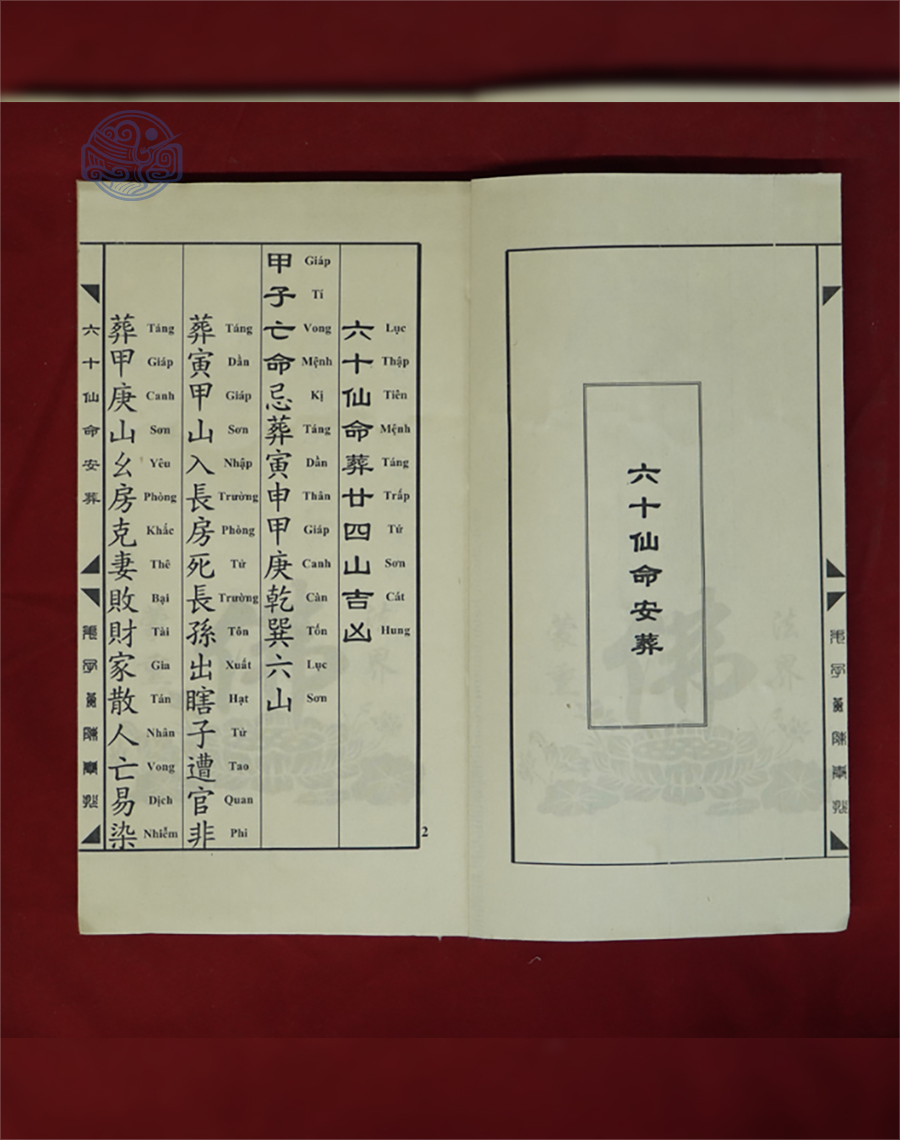 六十仙命安葬
六十仙命葬廿四山吉凶
Lục Thập Tiên Mệnh Táng Trấp Tứ Sơn Cát Hung
甲子亡命忌葬寅申甲庚乾巽六山
Giáp Tí Vong Mệnh Kị Táng Dần Thân Giáp Canh Càn Tốn Lục Sơn
葬寅甲山入長房死長孫出瞎子遭官非
Táng Dần Giáp Sơn Nhập Trường Phòng Tử Trường Tôn Xuất Hạt Tử Tao Quan Phi
葬甲庚山幺房克妻敗財家散人亡易染
Táng Giáp Canh Sơn Yêu Phòng Khắc Thê Bại Tài Gia Tán Nhân Vong Dịch Nhiễm
六十仙命安葬
2
佛
法界